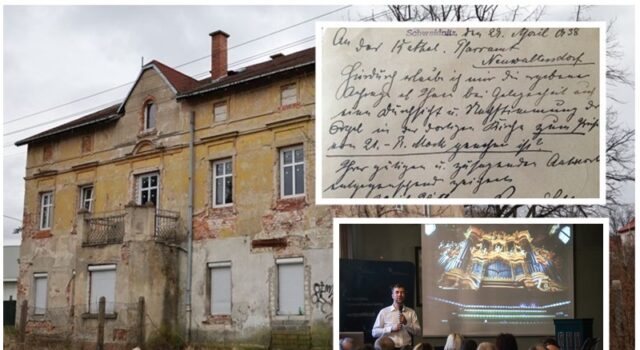 Schweidnitz, den 29. April 38
An das Kathol. Pfarramt
Neuwaltersdorf
Hierdurch erlaube ich mir die ergebene
Anfrage ob Ihnen bei Gelegenheit
eine Durchsicht u. Nachstimmung der
Orgel in der dortigen Kirche zum Preise
von 21.- R. Mark genehm ist?
Ihrer gütigen u. zusagenden Antwort
entgegensehend zeichnet